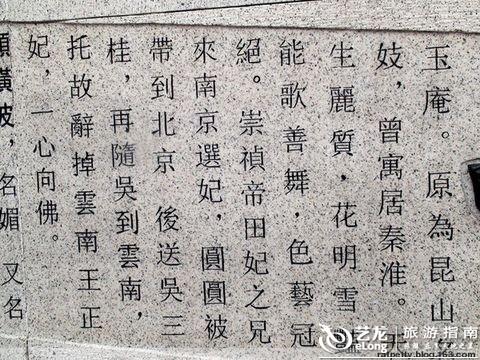 玉庵。原為昆山
妓，曾寓居秦淮。
生麗質，花明雪
能歌善舞，色藝冠
絕。崇禎帝田妃之兄
來南京選妃，圓圓被
帶到北京 後送吳三
桂，再隨吳到雲南，
托故辭掉雲南王正
妃，一心向佛。
顧橫波，名媚 又名
艺龙 旅游指南
eLong.com
ratpetty.blog.163.com